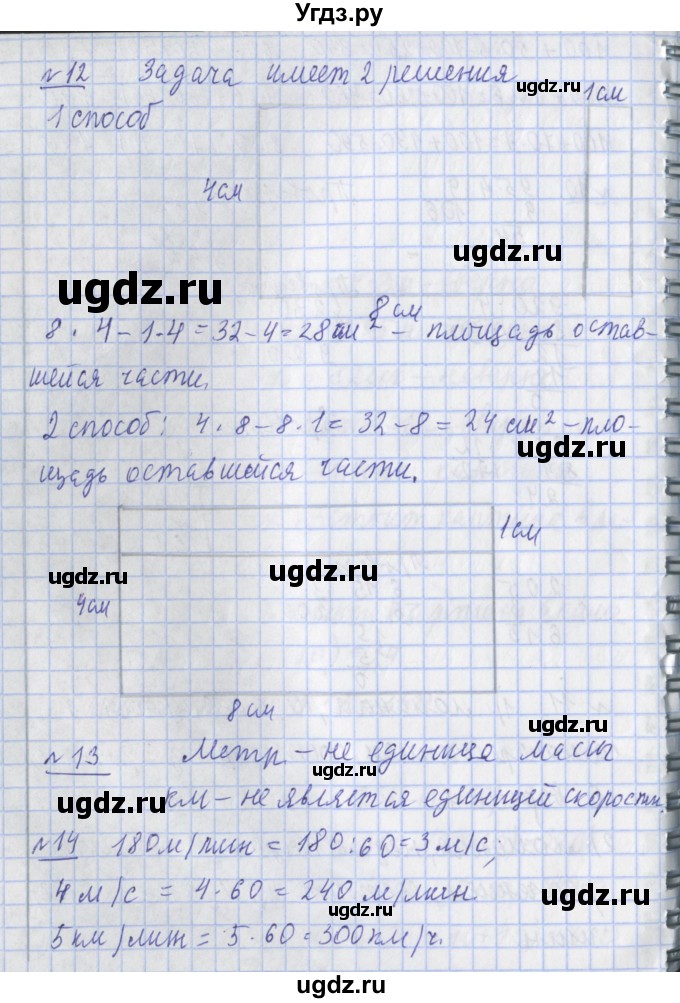 Угдз.ру
№12 Задача имеет 2 решения
1 способ
1см
4см
8см
8 · 4 - 1·4 = 32 - 4 = 28 см² - площадь остав-
шейся части.
2 способ: 4 · 8 - 8 · 1 = 32 - 8 = 24 см² - пло-
щадь оставшейся части.
1см
4см
8см
№13 Метр - не единица массы
км - не является единицей скорости.
№14 180м/мин = 180:60=3 м/с;
4м/с = 4·60 = 240 м/мин.
5км/мин = 5·60=300км/ч.
ugdz.ru
ugdz.ru
ugdz.ru
ugdz.ru
ugdz.ru
ugdz.ru
ugdz.ru
ugdz.ru
ugdz.ru
ugdz.ru
ugdz.ru
ugdz.ru
ugdz.ru
Угдз.ру